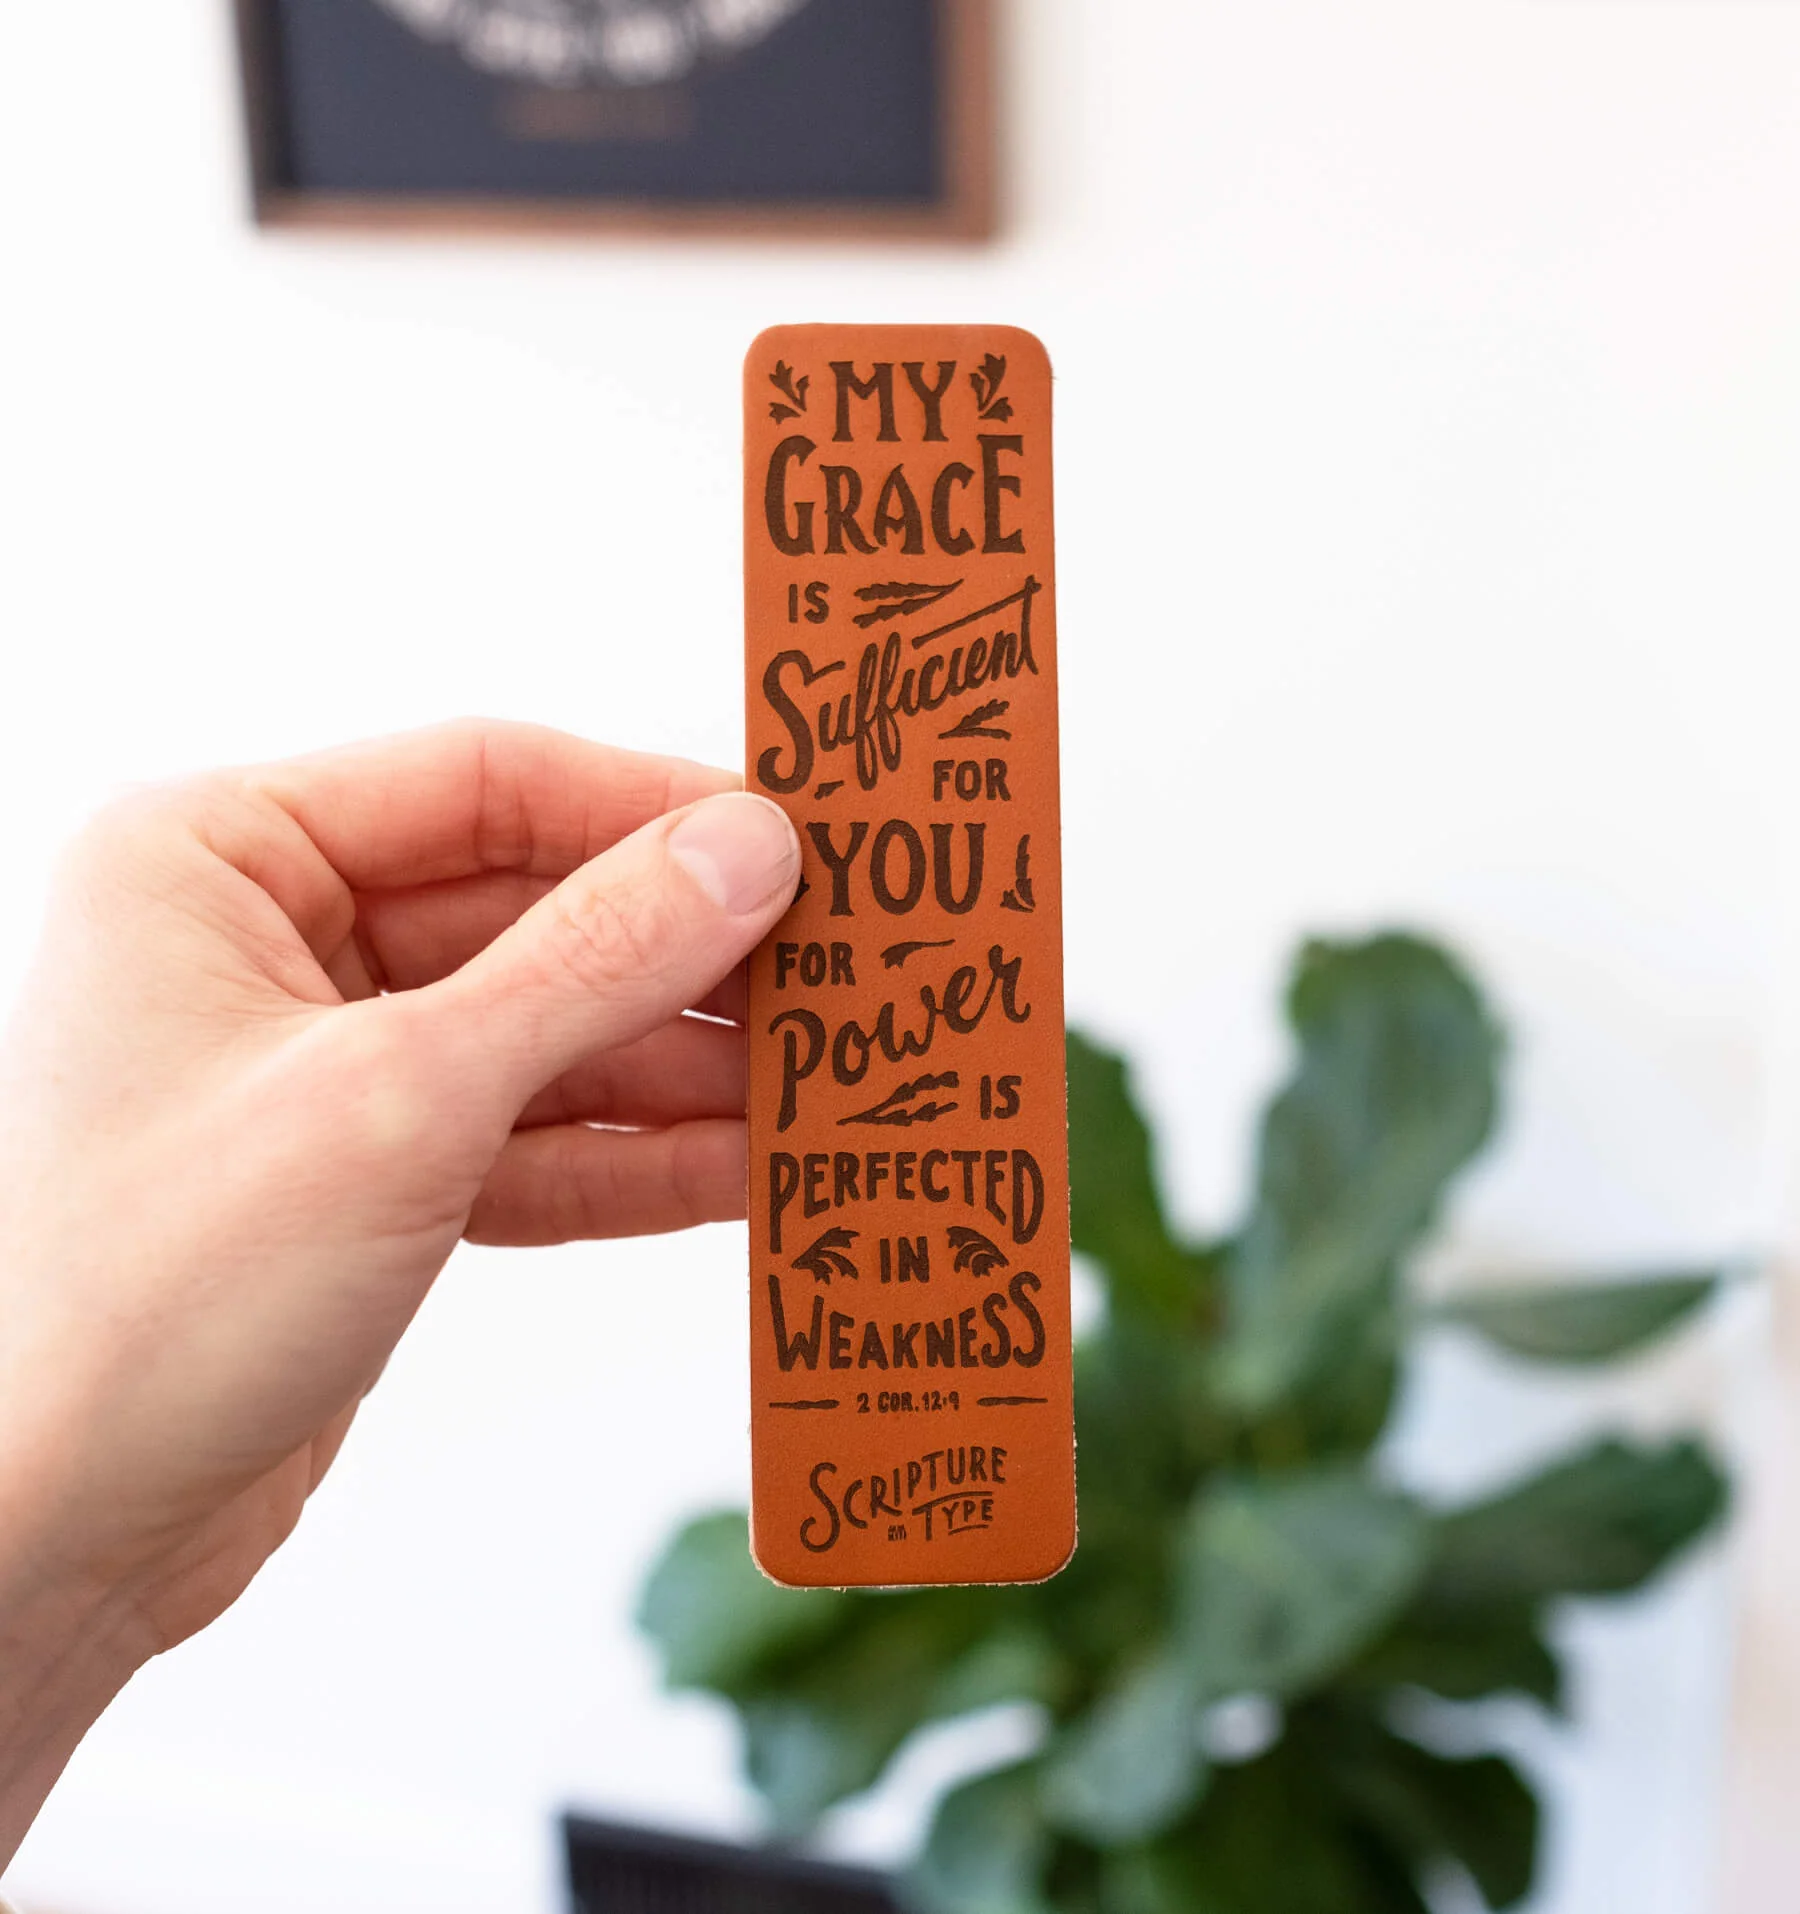 MY
GRACE
IS
Sufficient
FOR
YOU
FOR
Power
IS
PERFECTED
IN
WEAKNESS
2 COR. 12:9
SCRIPTURE
TYPE